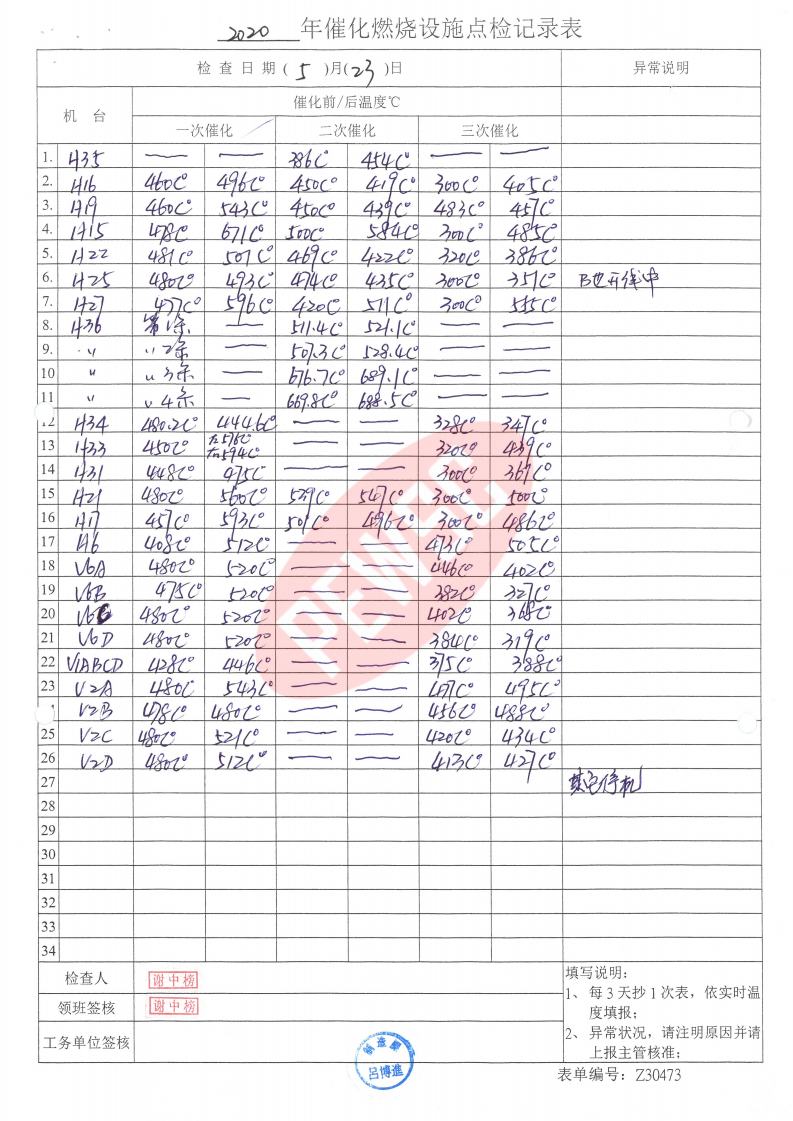 2020 年催化燃烧设施点检记录表
检查日期(5)月(23)日 异常说明
机 台 催化前/后温度℃
一次催化 二次催化 三次催化
1. H35 — — 386C° 454C° — —
2. H16 460C° 496C° 450C° 419C° 300C° 405C°
3. H19 460C° 543C° 450C° 439C° 483C° 457C°
4. H15 478C° 671C° 500C° 584C° 300C° 485C°
5. H22 481C° 501C° 469C° 422C° 320C° 386C°
6. H25 480C° 493C° 474C° 435C° 300C° 351C° B也开线中
7. H27 477C° 596C° 420C° 511C° 300C° 555C°
8. H36 第1条 — 511.4C° 521.1C° — —
9. 〃 〃2条 — 507.3C° 528.4C° — —
10 〃 〃3条 — 676.7C° 689.1C° — —
11 〃 〃4条 — 669.8C° 688.5C° — —
12 H34 480.2C° 444.6C° — — 328C° 347C°
13 H33 450C° 左576C° 右594C° — — 320C° 439C°
14 H31 448C° 475C° — — 300C° 367C°
15 H21 480C° 560C° 529C° 547C° 300C° 500C°
16 H17 457C° 593C° 501C° 496C° 300C° 486C°
17 H6 408C° 512C° — — 473C° 505C°
18 V6A 480C° 520C° — — 446C° 402C°
19 V6B 475C° 520C° — — 382C° 327C°
20 V6C 480C° 520C° — — 402C° 368C°
21 V6D 480C° 520C° — — 384C° 319C°
22 V1ABCD 428C° 446C° — — 375C° 388C°
23 V2A 480C° 543C° — — 417C° 495C°
V2B 478C° 480C° — — 456C° 488C°
25 V2C 480C° 521C° — — 420C° 434C°
26 V2D 480C° 512C° — — 413C° 427C°
27 其它停机
28
29
30
31
32
33
34
PEWSC
检查人 谢中榜
领班签核 谢中榜
工务单位签核
制造课
吕博進
填写说明:
1、每3天抄1次表，依实时温
度填报;
2、异常状况，请注明原因并请
上报主管核准;
表单编号: Z30473